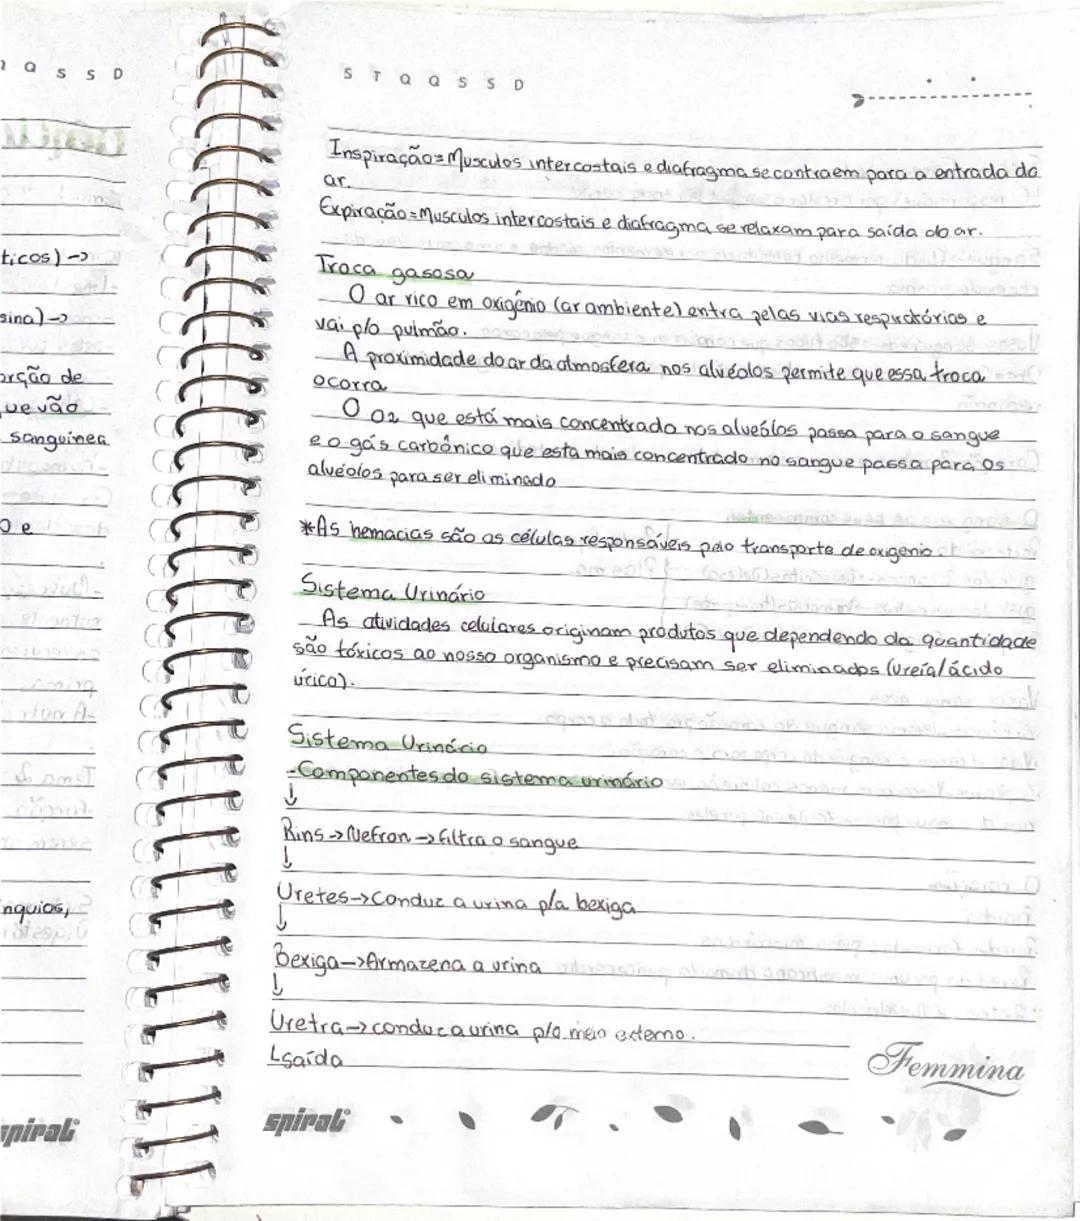 Q S S D
ticos) ->
sina) ->
orção de
ue vão
sanguinea
o e
nquios,
spiral
S T Q Q S S D
Inspiração = Musculos intercostais e diafragma se contraem para a entrada do
ar.
Expiração = Musculos intercostais e diafragma se relaxam para saída do ar.
Troca gasosa
O ar rico em oxigênio (ar ambiente) entra pelas vias respiratórias e
vai p/o pulmão.
A proximidade do ar da atmosfera nos alvéolos permite que essa troca
ocorra
O O2 que está mais concentrado nos alveólos passa para o sangue
e o gás carbônico que esta mais concentrado no sangue passa para os
alvéolos para ser eliminado
*As hemacias são as células responsáveis pelo transporte de oxigenio.
Sistema Urinário
As atividades celulares originam produtos que dependendo da quantidade
são tóxicos ao nosso organismo e precisam ser eliminados (Ureia/ácido
úrico).
Sistema Urinário
-Componentes do sistema urinário
↓
Rins -> Nefron -> filtra o sangue
↓
Uretes -> Conduz a urina p/a bexiga
↓
Bexiga -> Armazena a urina
↓
Uretra -> conduz a urina p/o meio externo.
↳ saída
Femmina
spiral